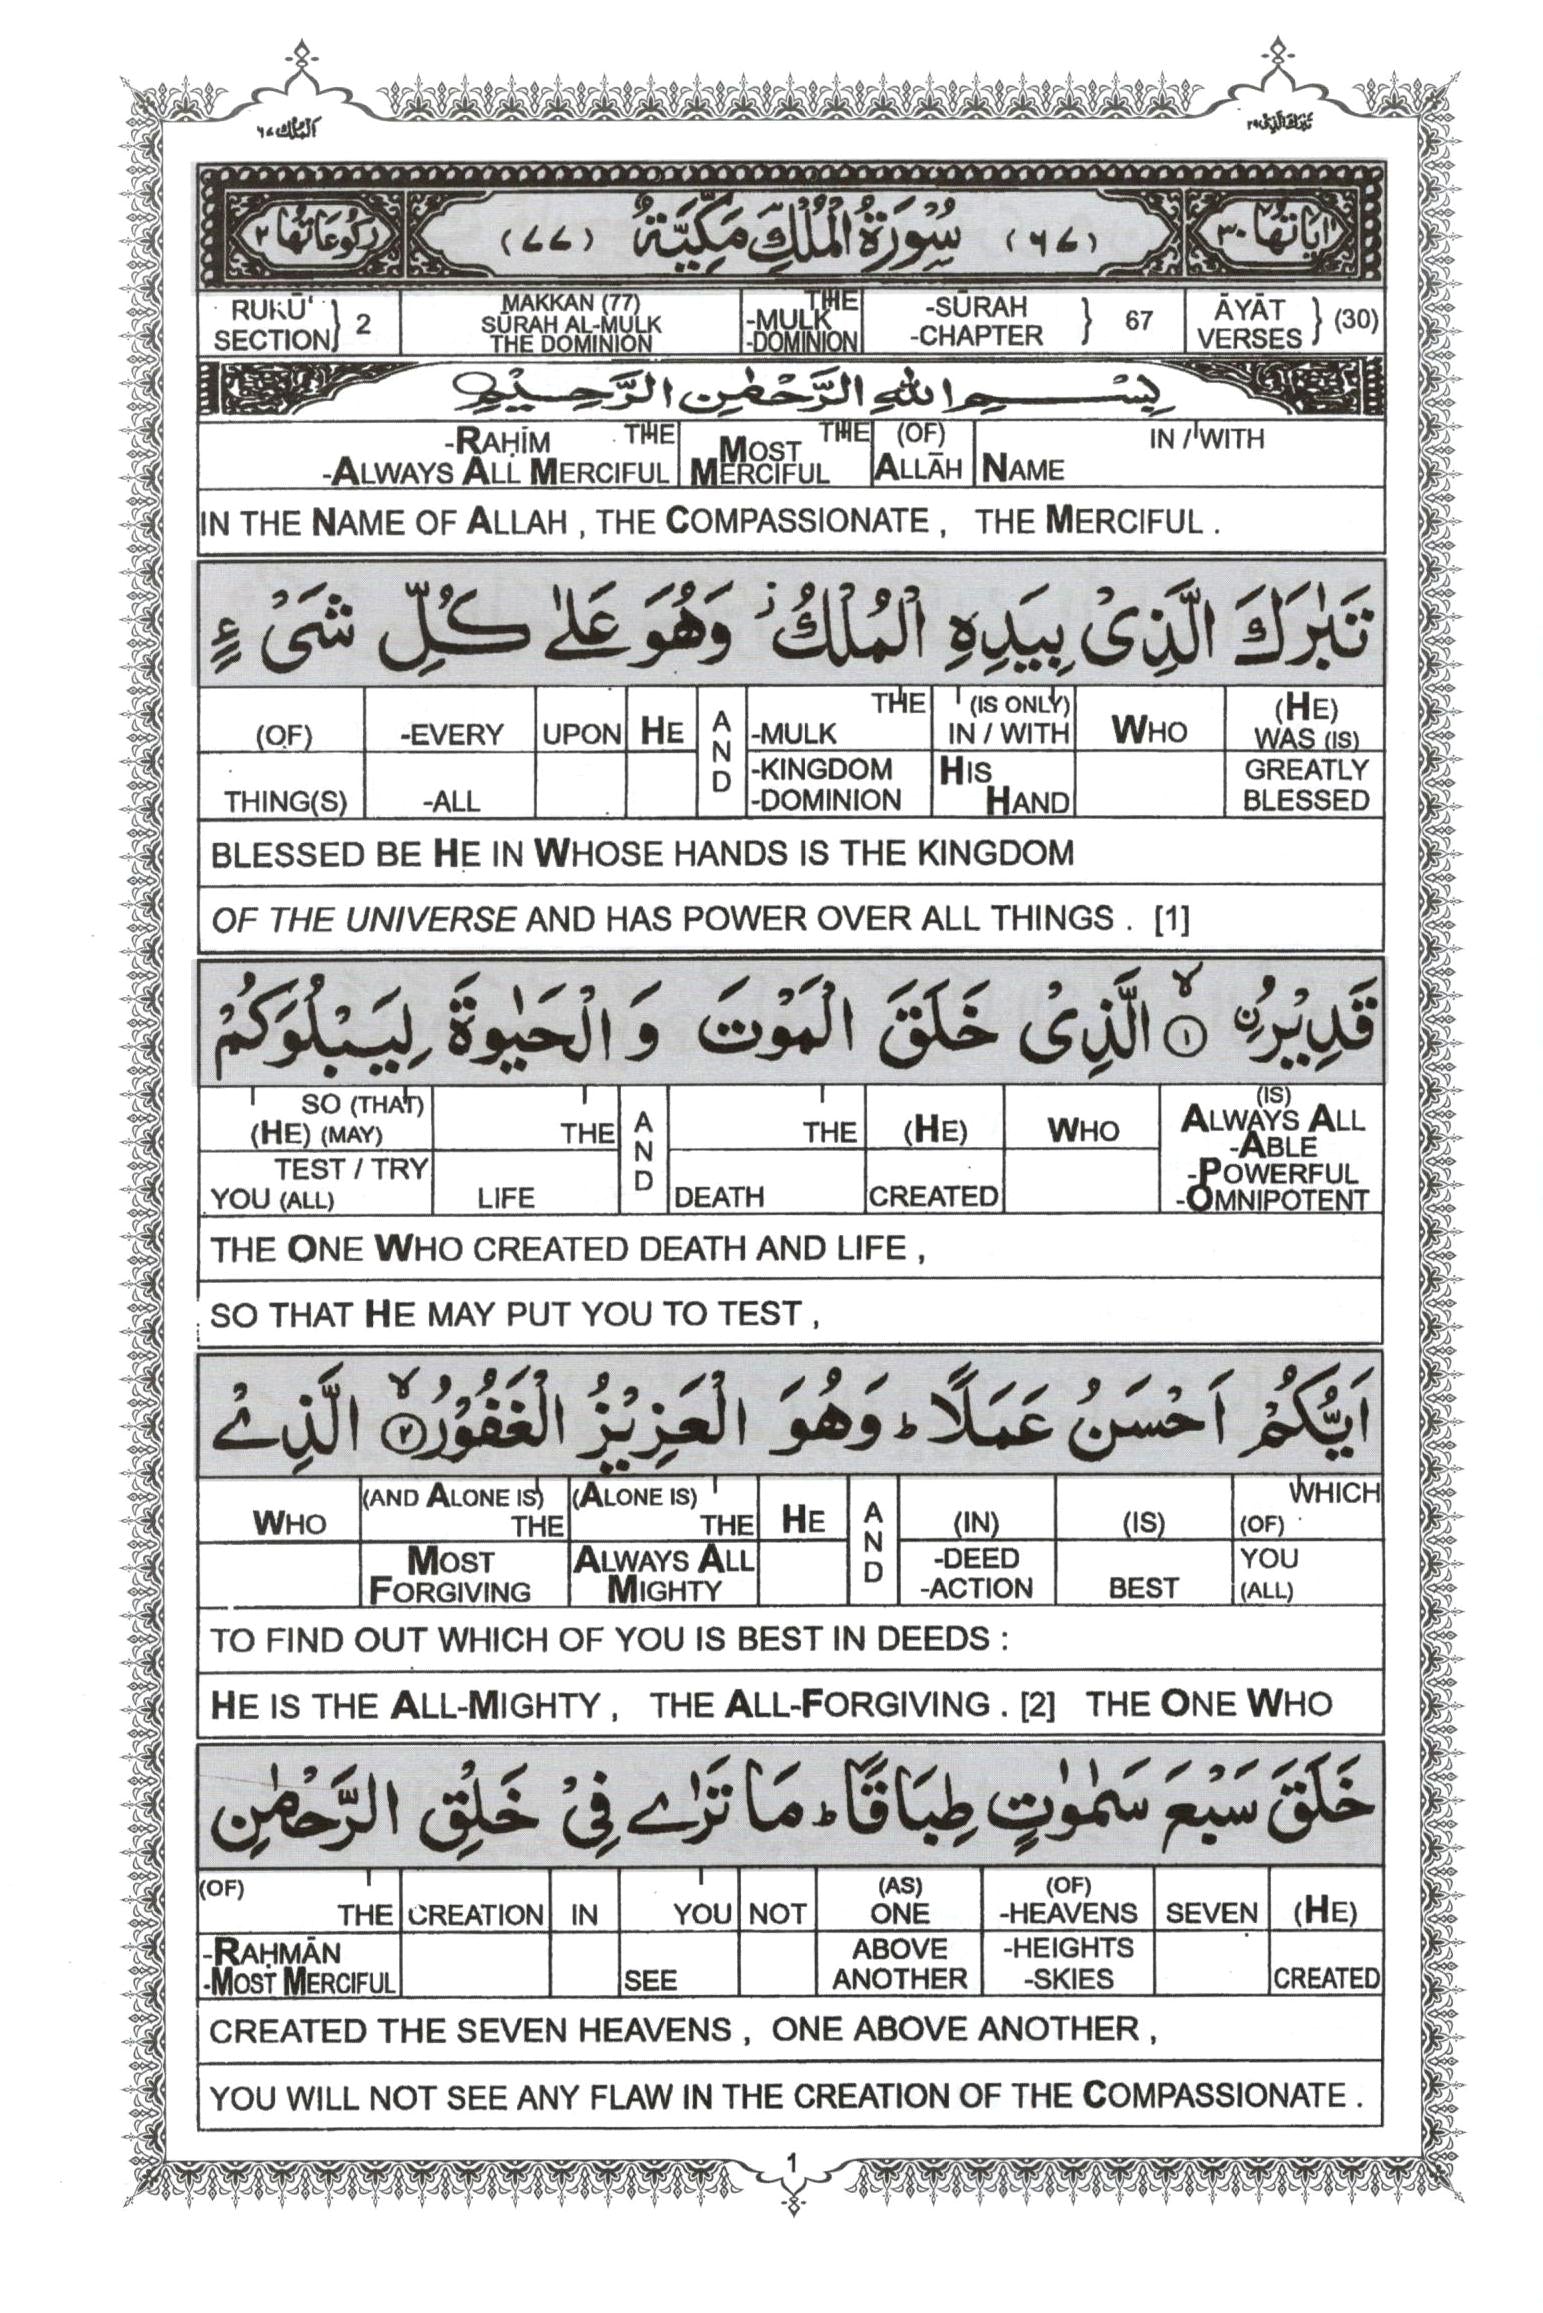 اَلْمُلْك ٦٧
تَبٰرَكَ الَّذِىْ ٢٩
اٰيَاتُهَا ٣٠ (٦٧) سُوْرَةُ الْمُلْكِ مَكِّيَّةٌ (٧٧) رُكُوْعَاتُهَا ٢
RUKŪ' SECTION } 2 MAKKAN (77) SŪRAH AL-MULK THE DOMINION THE -MULK -DOMINION -SŪRAH -CHAPTER } 67 ĀYĀT VERSES } (30)
بِسْمِ اللهِ الرَّحْمٰنِ الرَّحِيْمِ
-RAḤĪM THE MOST THE (OF) IN / WITH
-ALWAYS ALL MERCIFUL MERCIFUL ALLĀH NAME
IN THE NAME OF ALLAH , THE COMPASSIONATE , THE MERCIFUL .
تَبٰرَكَ الَّذِىْ بِيَدِهِ الْمُلْكُ ز وَهُوَ عَلٰى كُلِّ شَىْءٍ
(OF) -EVERY UPON HE AND -MULK THE (IS ONLY) IN / WITH WHO (HE) WAS (IS)
THING(S) -ALL -KINGDOM -DOMINION HIS HAND GREATLY BLESSED
BLESSED BE HE IN WHOSE HANDS IS THE KINGDOM
OF THE UNIVERSE AND HAS POWER OVER ALL THINGS . [1]
قَدِيْرُنِ ۙ ١ الَّذِىْ خَلَقَ الْمَوْتَ وَ الْحَيٰوةَ لِيَبْلُوَكُمْ
SO (THAT) (HE) (MAY) THE AND THE (HE) WHO (IS) ALWAYS ALL -ABLE
TEST / TRY YOU (ALL) LIFE DEATH CREATED -POWERFUL -OMNIPOTENT
THE ONE WHO CREATED DEATH AND LIFE ,
SO THAT HE MAY PUT YOU TO TEST ,
اَيُّكُمْ اَحْسَنُ عَمَلًا ؕ وَهُوَ الْعَزِيْزُ الْغَفُوْرُ ۙ ٢ الَّذِىْ
WHO (AND ALONE IS) THE (ALONE IS) THE HE AND (IN) (IS) WHICH (OF)
MOST FORGIVING ALWAYS ALL MIGHTY -DEED -ACTION BEST YOU (ALL)
TO FIND OUT WHICH OF YOU IS BEST IN DEEDS :
HE IS THE ALL-MIGHTY , THE ALL-FORGIVING . [2] THE ONE WHO
خَلَقَ سَبْعَ سَمٰوٰتٍ طِبَاقًا ؕ مَا تَرٰى فِىْ خَلْقِ الرَّحْمٰنِ
(OF) THE CREATION IN YOU NOT (AS) ONE (OF) -HEAVENS SEVEN (HE)
-RAḤMĀN -MOST MERCIFUL SEE ABOVE ANOTHER -HEIGHTS -SKIES CREATED
CREATED THE SEVEN HEAVENS , ONE ABOVE ANOTHER ,
YOU WILL NOT SEE ANY FLAW IN THE CREATION OF THE COMPASSIONATE .
1